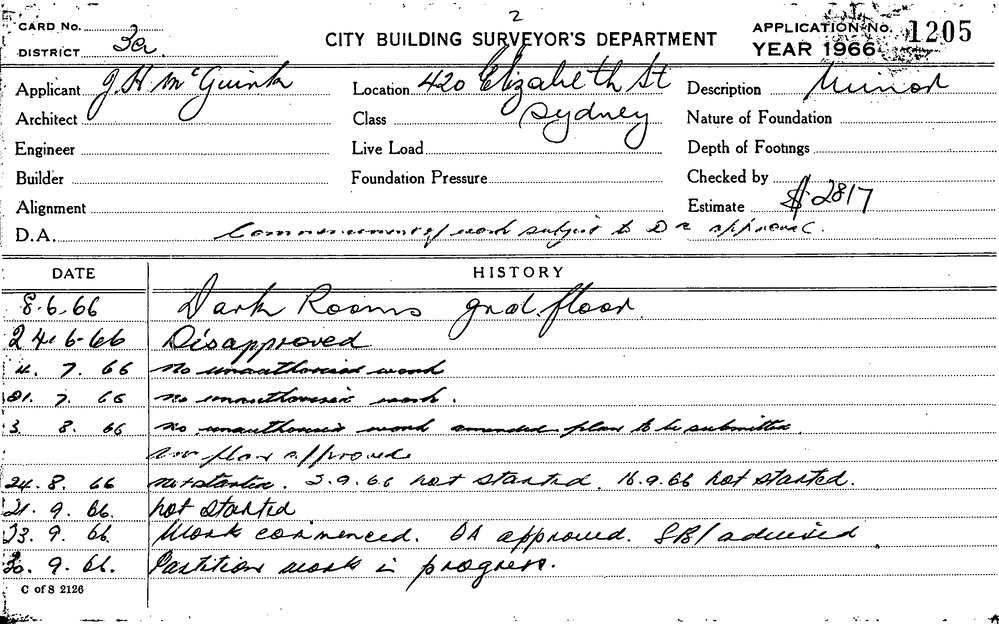 2
CARD No. CITY BUILDING SURVEYOR'S DEPARTMENT APPLICATION No. 1205
DISTRICT 3a YEAR 1966
Applicant J. H. Location 420 Elizabeth St Description Minor
Architect Class Sydney Nature of Foundation
Engineer Live Load Depth of Footings
Builder Foundation Pressure Checked by
Alignment Estimate $2817
D.A. Commencement of work subject to DA approval.
DATE HISTORY
8.6.66 Dark Rooms grd. floor
24.6-66 Disapproved
4. 7. 66 no unauthorised work
7. 66 no unauthorised work.
3. 8. 66 no unauthorised work amended plan to be submitted.
plan approved
24. 8. 66 not started. 5.9.66 not started. 16.9.66 not started.
21. 9. 66. not started
23. 9. 66. Work commenced. DA approved. advised.
30. 9. 66. Partition work in progress.
C of S 2126